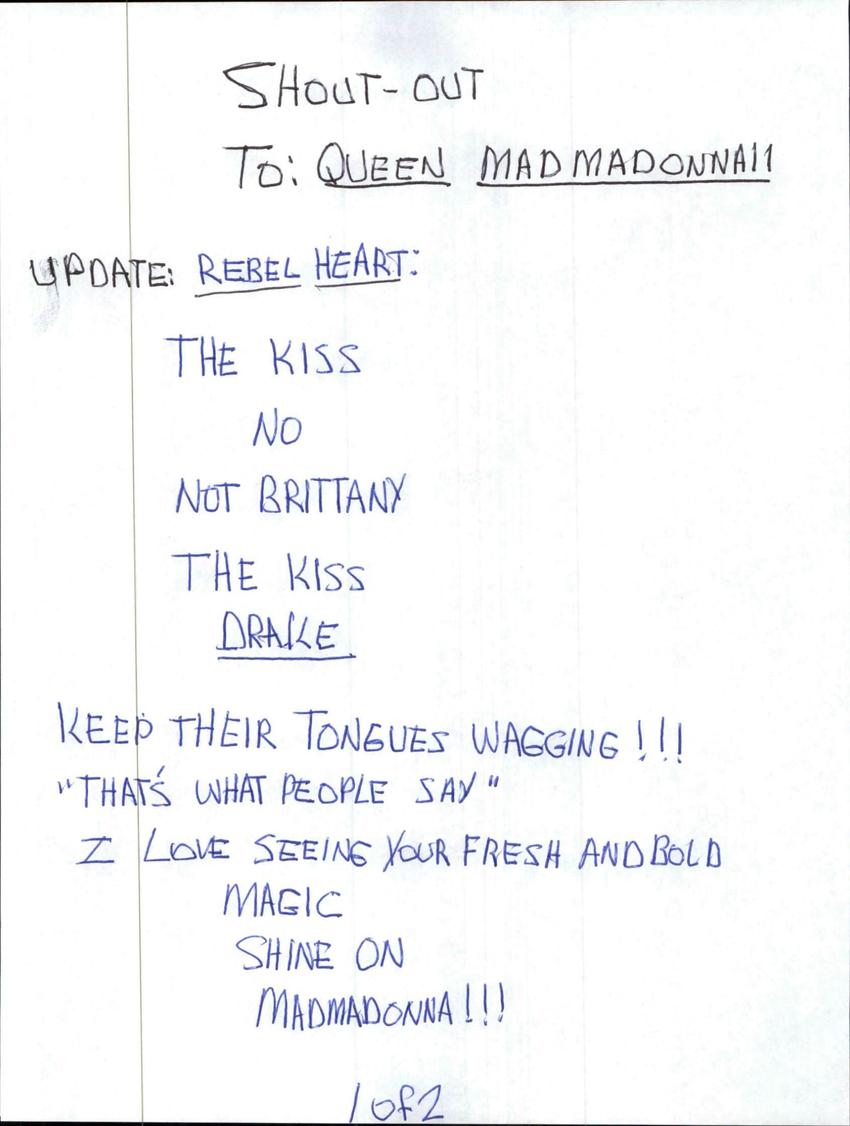 SHOUT-OUT
TO: QUEEN MADMADONNA11
UPDATE: REBEL HEART:
THE KISS
NO
NOT BRITTANY
THE KISS
DRAKE
KEEP THEIR TONGUES WAGGING!!!
"THAT'S WHAT PEOPLE SAY"
I LOVE SEEING YOUR FRESH AND BOLD
MAGIC
SHINE ON
MADMADONNA!!!
1 of 2